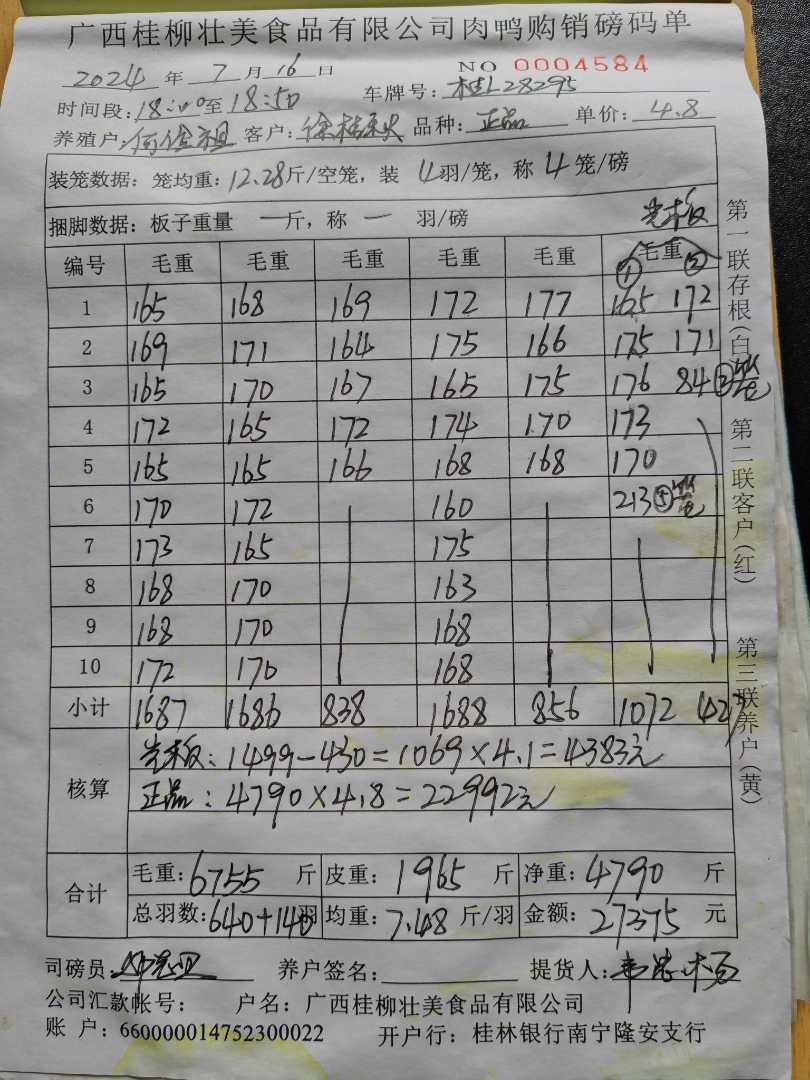 广西桂柳壮美食品有限公司肉鸭购销磅码单
NO 0004584
2024 年 7 月 16 日 车牌号: 桂L28295
时间段: 18:00 至 18:50
养殖户: 客户: 品种: 正品 单价: 4.8
装笼数据: 笼均重: 12.28 斤/空笼, 装 4 羽/笼, 称 4 笼/磅
捆脚数据: 板子重量 一 斤, 称 一 羽/磅 光板
编号 毛重 毛重 毛重 毛重 毛重 毛重 ① ②
1 165 168 169 172 177 165 172
2 169 171 164 175 166 175 171
3 165 170 167 165 175 176 84 ②笼
4 172 165 172 174 170 173
5 165 165 166 168 168 170
6 170 172 160 213 ⑤笼
7 173 165 175
8 168 170 163
9 168 170 168
10 172 170 168
小计 1687 1686 838 1688 856 1072 427
核算
光板: 1499-430=1069×4.1=4383元
正品: 4790×4.8=22992元
合计
毛重: 6755 斤 皮重: 1965 斤 净重: 4790 斤
总羽数: 640+140 羽 均重: 7.48 斤/羽 金额: 27375 元
司磅员: 养户签名: 提货人:
公司汇款帐号: 户名: 广西桂柳壮美食品有限公司
账 户: 660000014752300022 开户行: 桂林银行南宁隆安支行
第一联存根(白) 第二联客户(红) 第三联养户(黄)